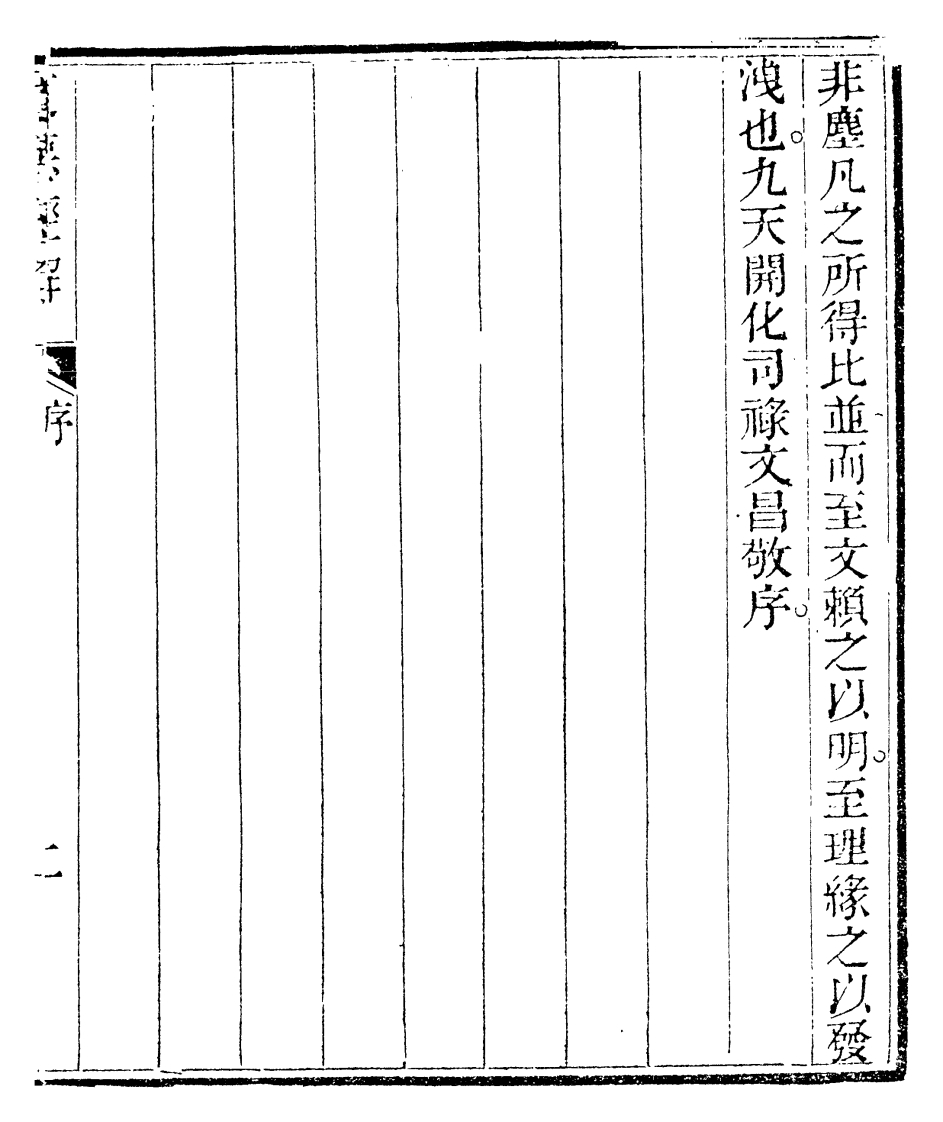 非塵凡之所得比並而至文賴之以明。至理緣之以發
洩也。九天開化司祿文昌敬序。
經解
序
二